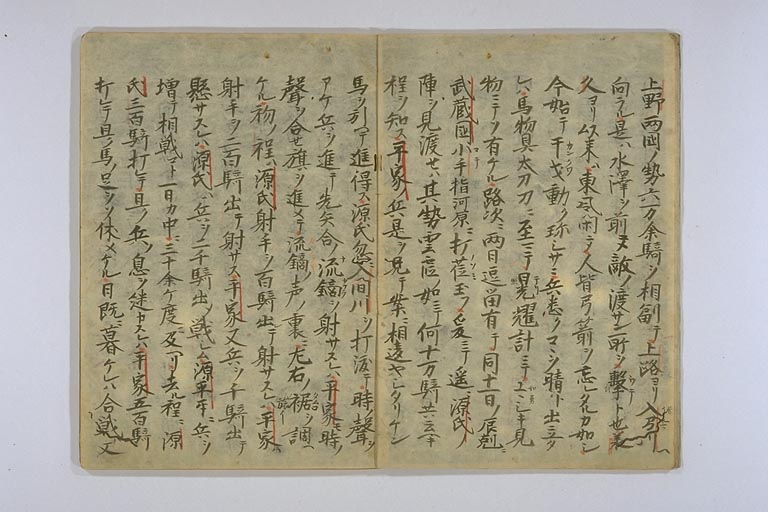 上野両国ノ勢六万余騎ヲ相副テ上路ヨリ入間川ヘ
向ラル是ハ水澤ヲ前ヌ敵ノ渡サン所ヲ撃ト也
久ヨリ以来東風閑ニテ人皆弓箭ヲ忘レタルカ如シ
今始テ干戈動ク珎シサニ兵悉クマシ晴ト出立
レハ馬物具太刀刀ニ至ニテ晃耀計ニテユヽシキ見
物ニソ有ケル路次ニ両日逗留有テ同十日ノ辰刻ニ
武蔵国小手指河原ニ打莅玉フ爰ニテ遥源氏ノ
陣ヲ見渡セハ其勢雲霞如ニテ何十万騎共云ヘキ
程ヲ知ス平家ノ兵是ヲ見テ案ニ相違ヤシタリケン
馬ヲ引ヘテ進得ス源氏忽入間川ヲ打渡テ時ノ聲ヲ
アケ兵ヲ進テ先矢合ノ流鏑ヲ射サスレハ平家モ時ノ
聲ヲ合セ旗ヲ進メテ流鏑声ノ裏ニ左右ノ裾ヲ調
ケル初ノ程ハ源氏射手ヲ百騎出テ射サスレハ平家
射手ヲ二百騎出テ射サス平家又兵ヲ千騎出テ
懸サスレハ源氏ハ兵ヲ二千騎出メ戦シム源平互ニ兵ヲ
増テ相戦コト一日カ中ニ三十余ケ度及ヘリ去ル程ニ源
氏三百騎打レテ且ノ兵ノ息ヲ継セスレハ平家五百騎
打レテ且ノ馬ノ足ヲソ休メケル日既ニ暮ケレハ合戦又